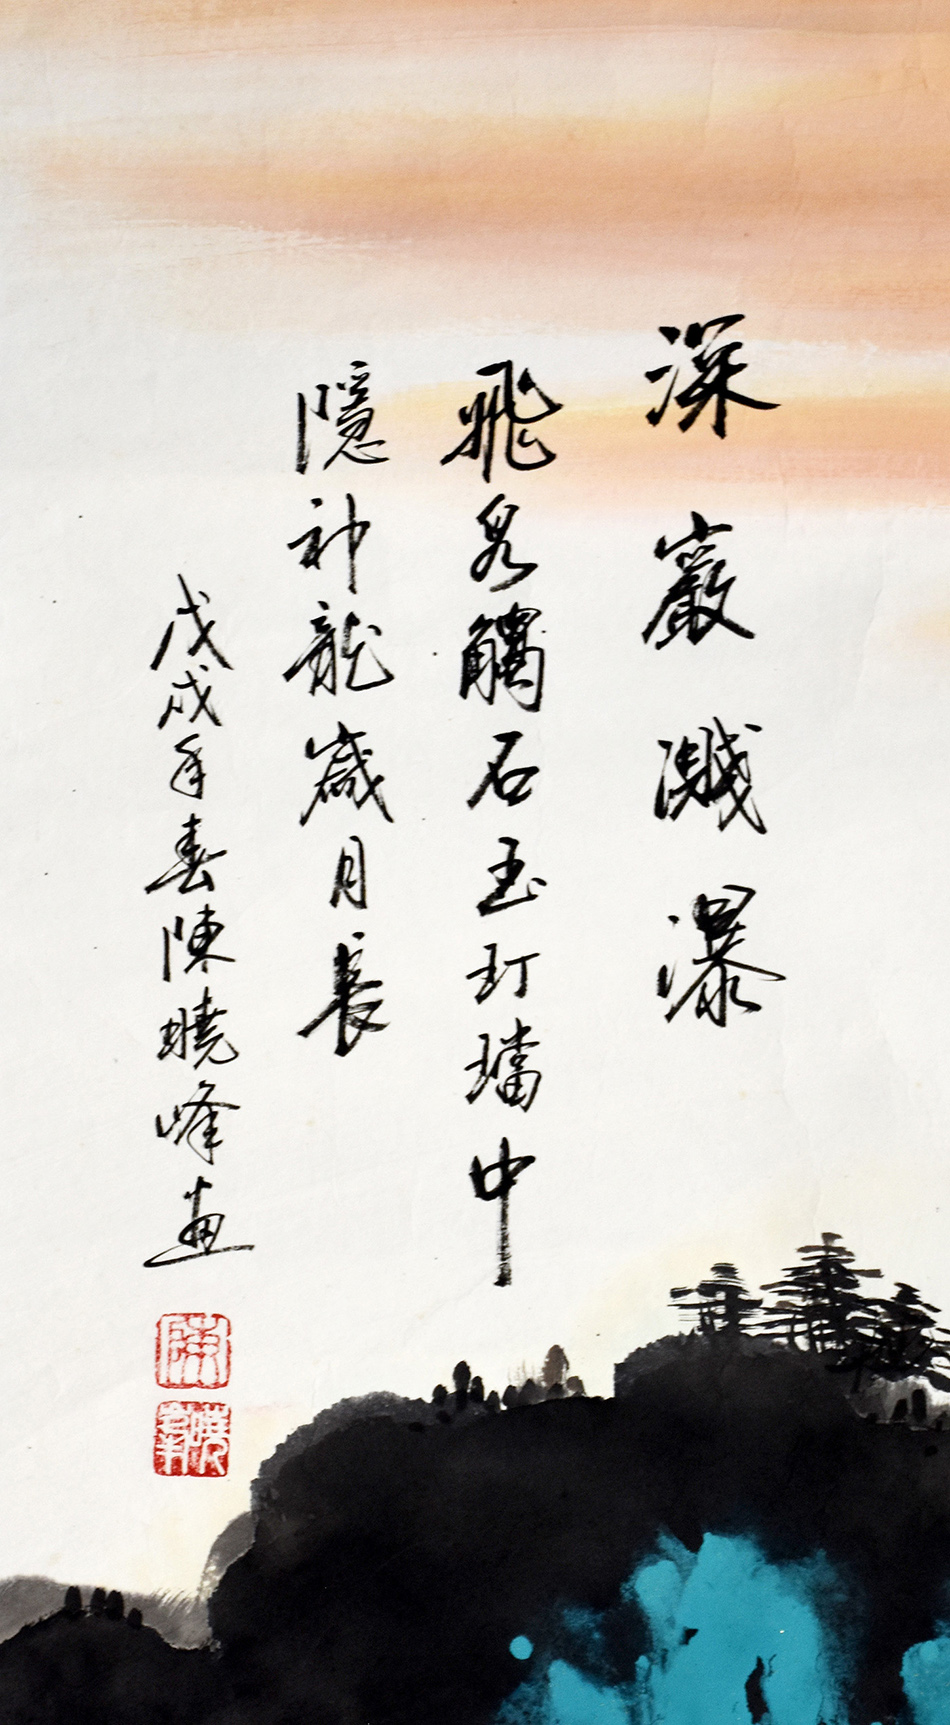 深巖濺瀑
飛泉觸石玉玎璫中
隱神龍歲月長
戊戌年春陳曉峰畫
陳
曉峯